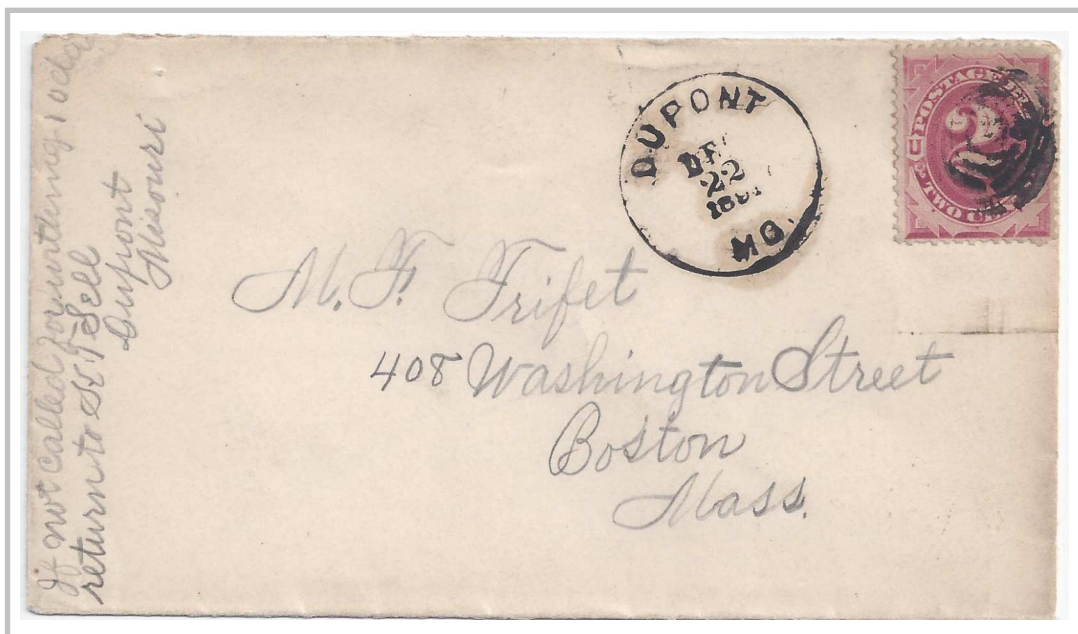 If not called for
return to S. T. Sell
Dupont
Missouri
DUPONT
22
MO.
POSTAGE
2
TWO
M. F. Trifet
408 Washington Street
Boston
Mass.